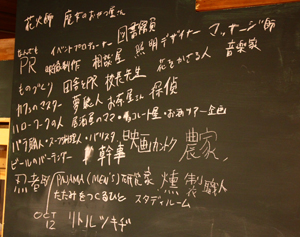 花火師 魔女のおかし屋さん 図書館員
なんでも イベントプロデューサー 照明デザイナー マッサージ師
PR 映像制作 相撲屋 花をかざる人 音楽家
ものづくり 田舎をPR 校長先生
カフェのマスター 夢職人 お茶屋さん 探偵
ハローワークの人 居酒屋のママ・チョコレート屋・お酒ツアー企画
パン職人・スープ料理人・バリスタ 映画カントク 農家
ビールのバーテンダー 幹事
忍者 PAJAMA (MEN'S) 研究家 燻製職人
たたみをつくるひと スタディルーム
OCT 12 リトルツキヂ